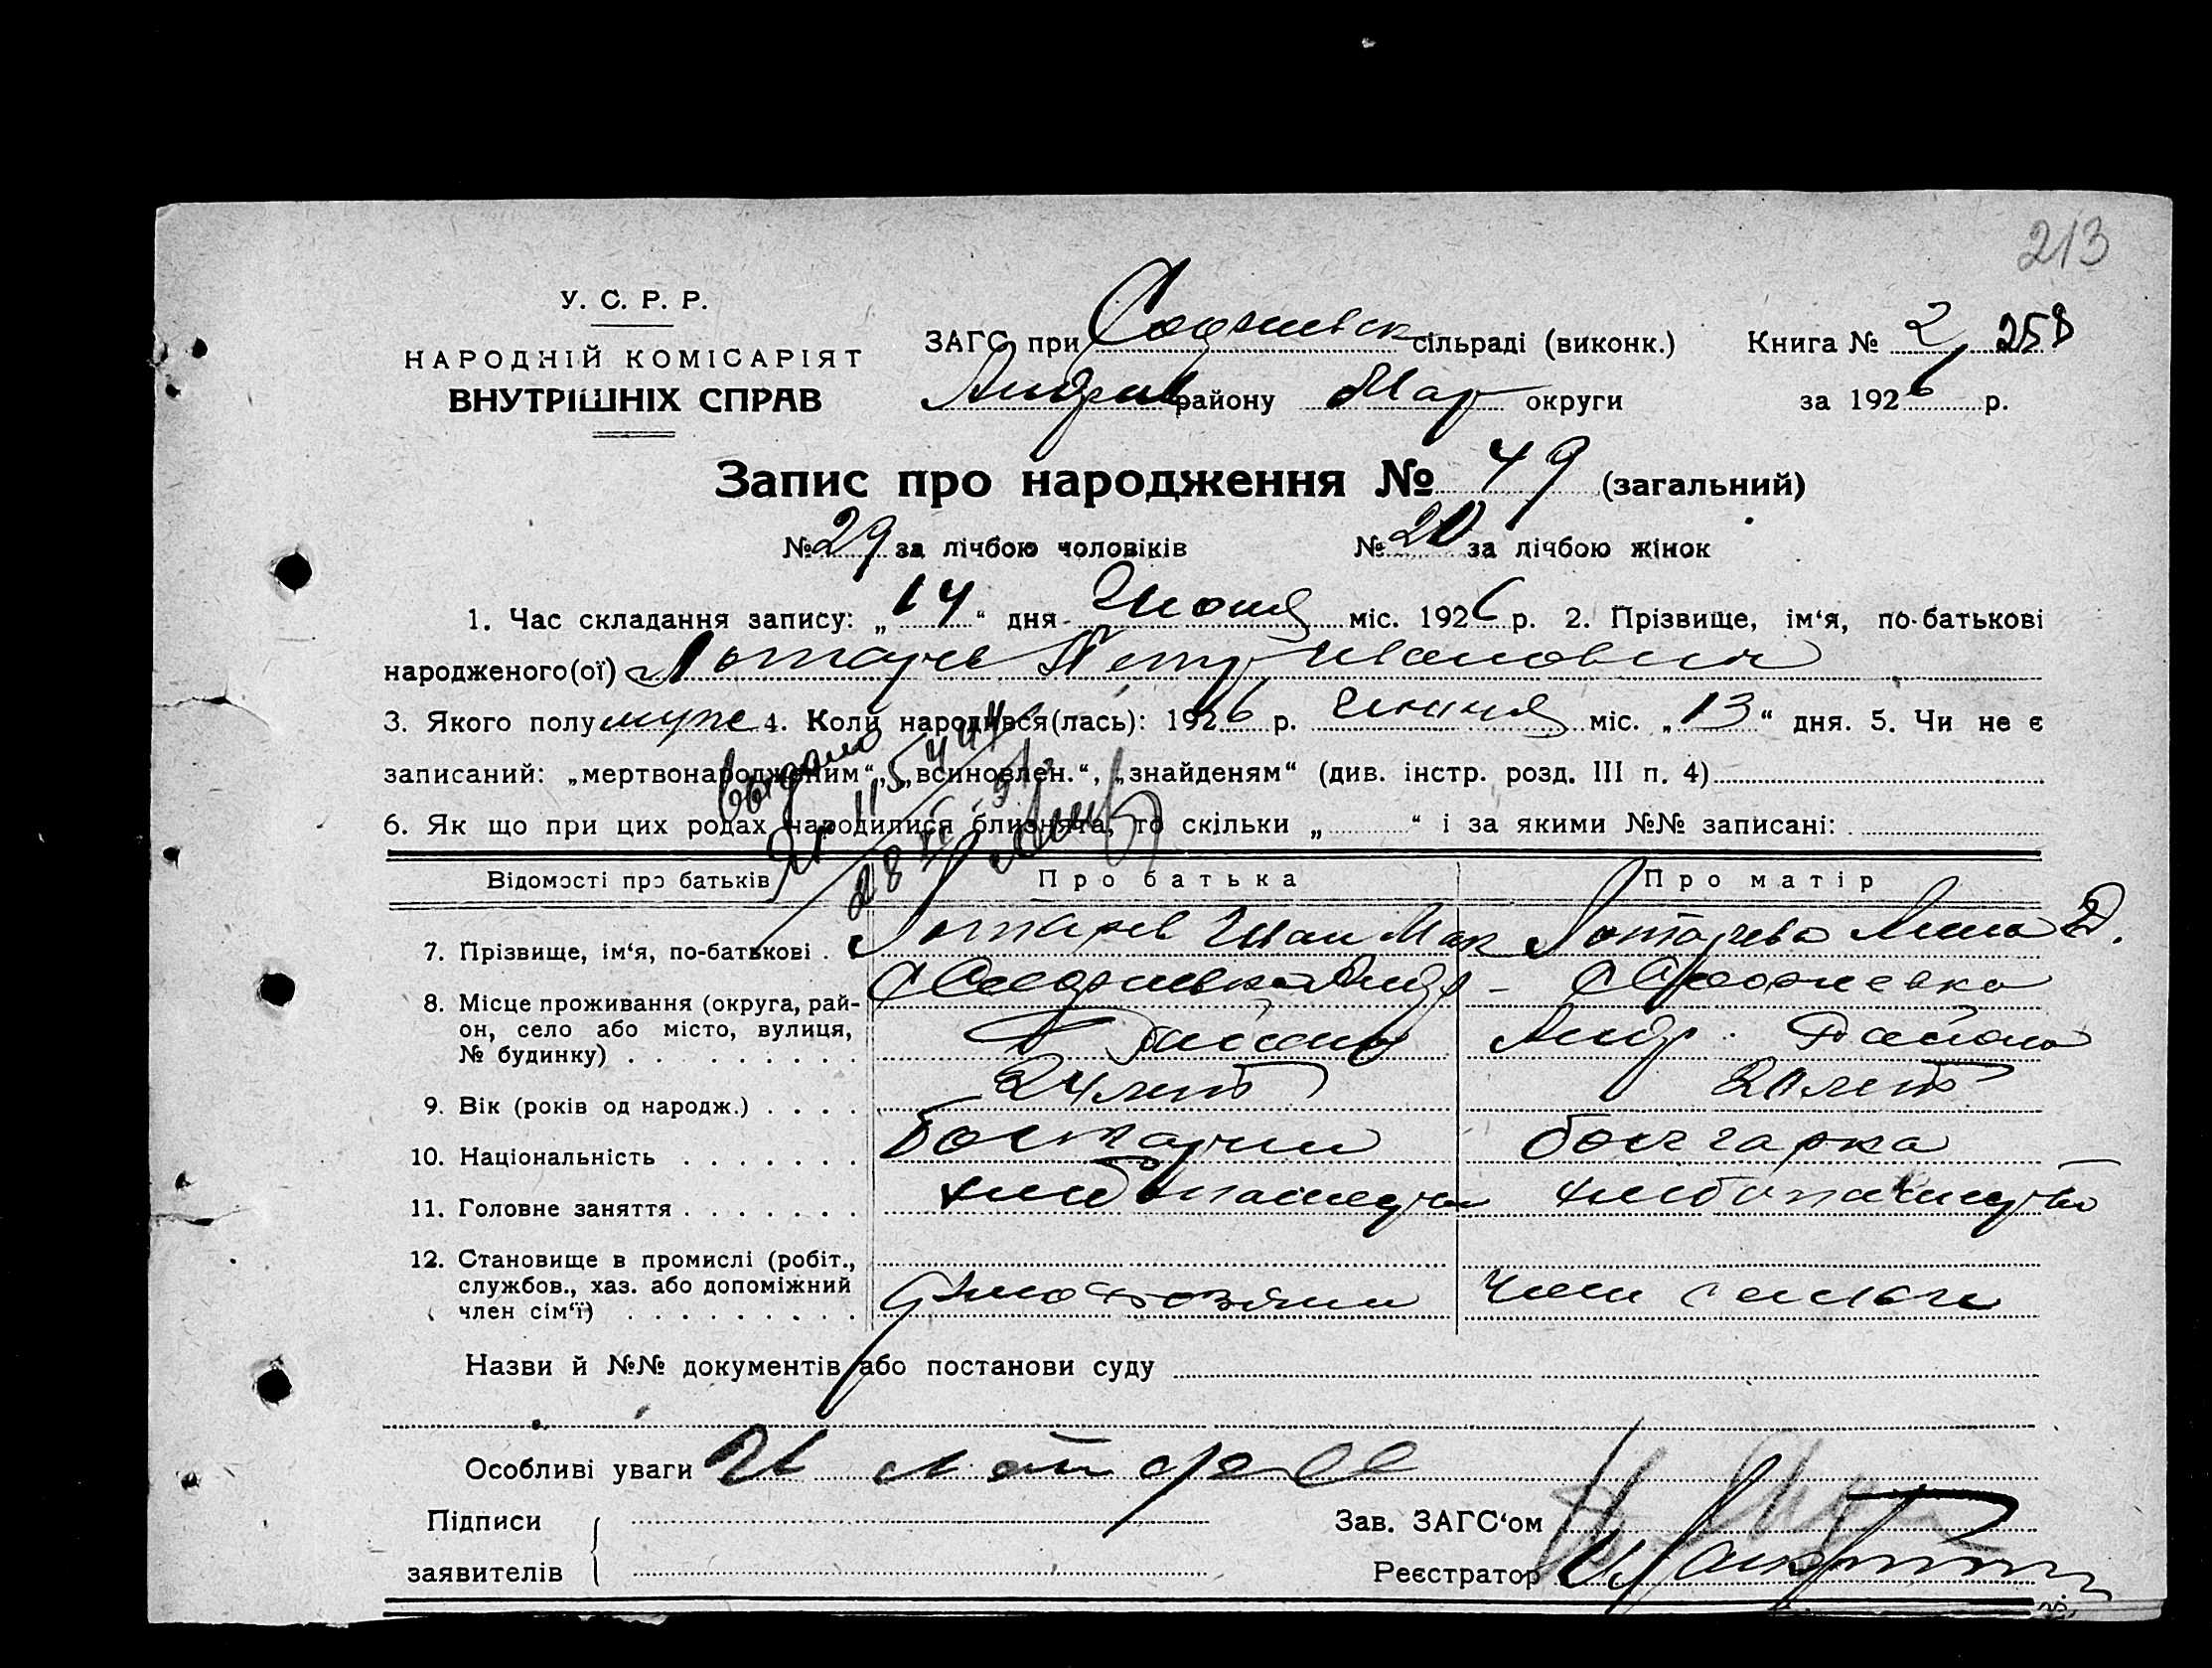 213
У. С. Р. Р.
НАРОДНІЙ КОМІСАРІЯТ
ВНУТРІШНІХ СПРАВ
ЗАГС при Софиевск сільраді (виконк.) Книга № 2 258
Андр району Мар округи за 1926 р.
Запис про народження № 49 (загальний)
№ 29 за лічбою чоловіків № 20 за лічбою жінок
1. Час складання запису: „14“ дня Июня міс. 1926 р. 2. Прізвище, ім‘я, по-батькові
народженого(ої) Лотарев Петр Иванович
3. Якого полу муже 4. Коли народився(лась): 1926 р. Июня міс. „13“ дня. 5. Чи не є
записаний: „мертвонародженим“, „всиновлен.“, „знайденям“ (див. інстр. розд. III п. 4)
6. Як що при цих родах народилися близнята, то скільки „ “ і за якими №№ записані:
Выдано
Відомості про батьків Про батька Про матір
7. Прізвище, ім‘я, по-батькові . Лотарев Иван Мак Лотарева Анна Д.
8. Місце проживання (округа, рай-
он, село або місто, вулиця,
№ будинку) . . . . . . . . .
С Софиевка Андр - С Софиевка
Района Андр. Района
9. Вік (років од народж.) . . . . 24 лет 20 лет
10. Національність . . . . . . . Болгарин болгарка
11. Головне заняття . . . . . . . хлебопашество хлебопашество
12. Становище в промислі (робіт.,
службов., хаз. або допоміжний
член сім‘ї) . . . . . . . . .
домохозяин член семьи
Назви й №№ документів або постанови суду
Особливі уваги
Підписи
заявителів
Зав. ЗАГС‘ом
Реєстратор